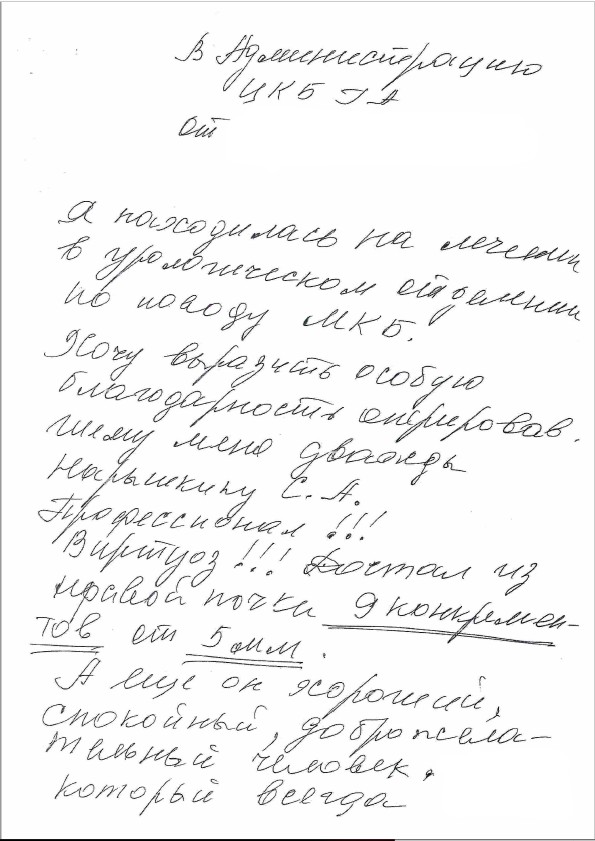 В Администрацию
ЦКБ ГА
от
Я находилась на лечении
в урологическом отделении
по поводу МКБ.
Хочу выразить особую
благодарность оперировав
шему меня дважды
Нарышкину С. А.
Профессионал !!!
Виртуоз !!! Достал из
правой почки 9 конкремен-
тов от 5 мм.
А еще он хороший,
спокойный, доброжела-
тельный человек,
который всегда